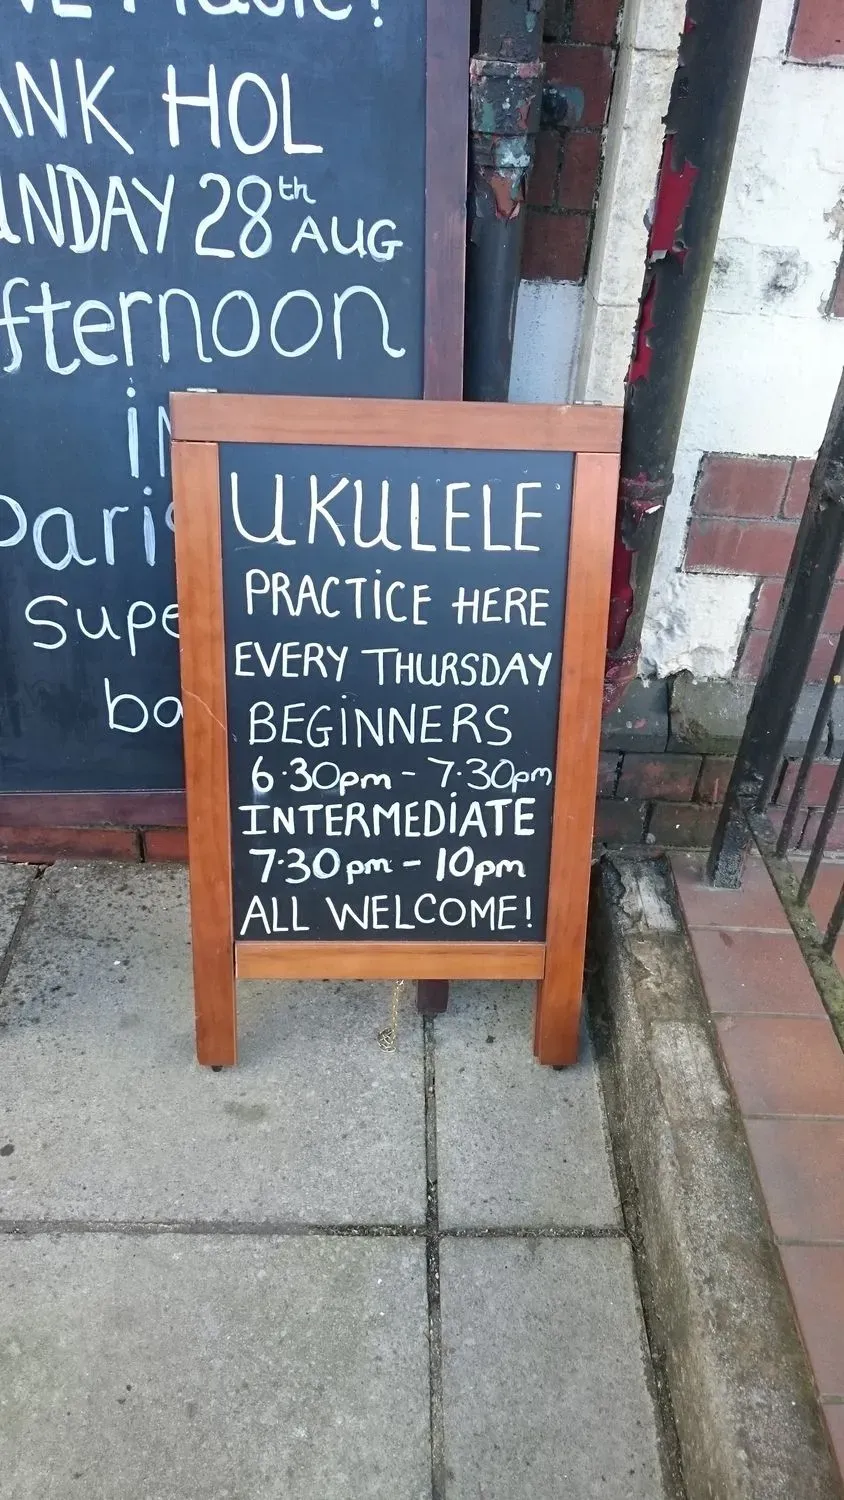 Music!
ANK HOL
NDAY 28th AUG
fternoon
in
Pari
Supe
ba
UKULELE
PRACTICE HERE
EVERY THURSDAY
BEGINNERS
6·30pm - 7·30pm
INTERMEDIATE
7·30pm - 10pm
ALL WELCOME!